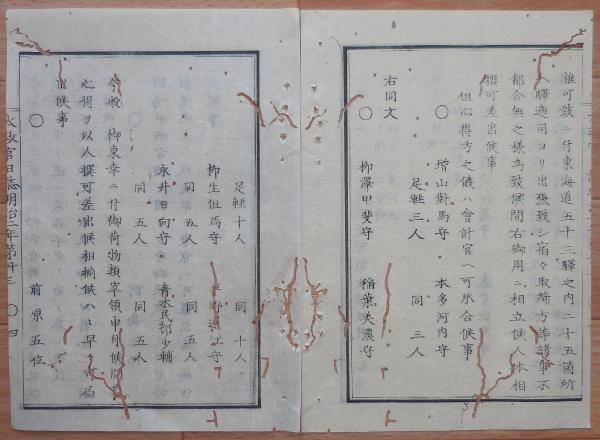 雖可致ニ付東海道五十三驛之内二十五箇所
ヘ驛逓司ヨリ出張致シ宿々取締方等諸事不
都合無之様為致候間右御用ニ相立候人体相
撰可差出候事
但心得方之儀ハ會計官ヘ可承合候事
○ 増山對馬守 本多河内守
足軽三人 同 三人
右同文
○ 柳澤甲斐守 稲葉美濃守
足軽十人 同 十人
柳生但馬守 平野遠江守
同 五人 同 五人
永井日向守 青木民部少輔
同 五人 同 五人
今般 御東幸ニ付御荷物類宰領申付候間
心得ヲ以人撰可差出候相揃候ハヽ早々可届
出候事
○ 前原五位
太政官日誌明治二年第廿三 ○ 四